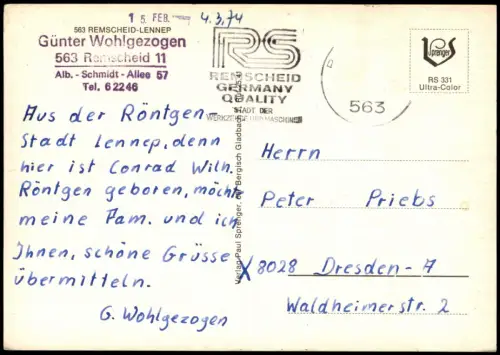 15. FEB.
4.3.74
563 REMSCHEID-LENNEP
Günter Wohlgezogen
563 Remscheid 11
Alb.-Schmidt-Allee 57
Tel. 62246
RS
REMSCHEID
GERMANY
QUALITY
STADT DER
WERKZEUGE UND MASCHINEN
563
Sprenger
RS 331
Ultra-Color
Aus der Röntgen-
Stadt Lennep, denn
hier ist Conrad Wilh.
Röntgen geboren, möchte
meine Fam. und ich
Ihnen, schöne Grüsse
übermitteln.
G. Wohlgezogen
Verlag Paul Sprenger, Bergisch Gladbach
Herrn
Peter Priebs
X 8028 Dresden-A
Waldheimerstr. 2